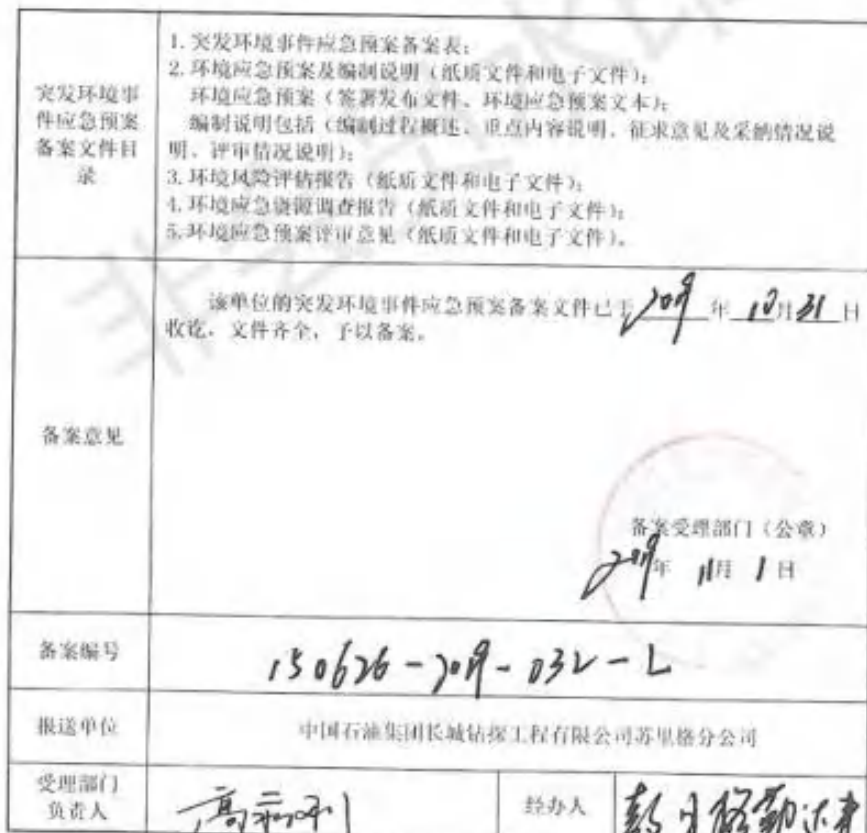 突发环境事
件应急预案
备案文件目
录
1.突发环境事件应急预案备案表;
2.环境应急预案及编制说明(纸质文件和电子文件);
环境应急预案(签署发布文件、环境应急预案文本);
编制说明包括(编制过程概述、重点内容说明、征求意见及采纳情况说
明、评审情况说明);
3.环境风险评估报告(纸质文件和电子文件);
4.环境应急资源调查报告(纸质文件和电子文件);
5.环境应急预案评审意见(纸质文件和电子文件)。
备案意见
该单位的突发环境事件应急预案备案文件已于2019年10月31日
收讫,文件齐全,予以备案。
备案受理部门(公章)
2019年11月1日
备案编号
150626-2019-032-L
报送单位
中国石油集团长城钻探工程有限公司苏里格分公司
受理部门
负责人
经办人